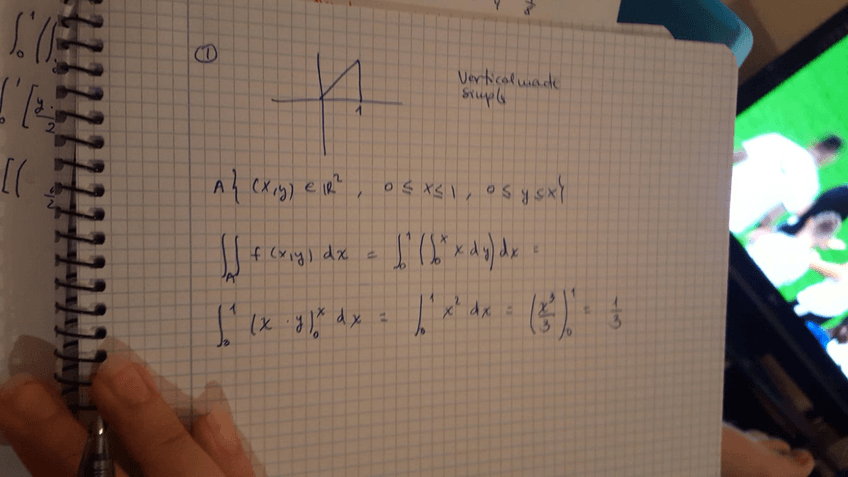 ①
Verticalmade
simple
1
A{ (x,y) ∈ ℝ², 0 ≤ x ≤ 1, 0 ≤ y ≤ x}
∬_A f(x,y) dx = ∫₀¹ (∫₀ˣ x dy) dx =
∫₀¹ (x · y)₀ˣ dx = ∫₀¹ x² dx = (x³/3)₀¹ = 1/3